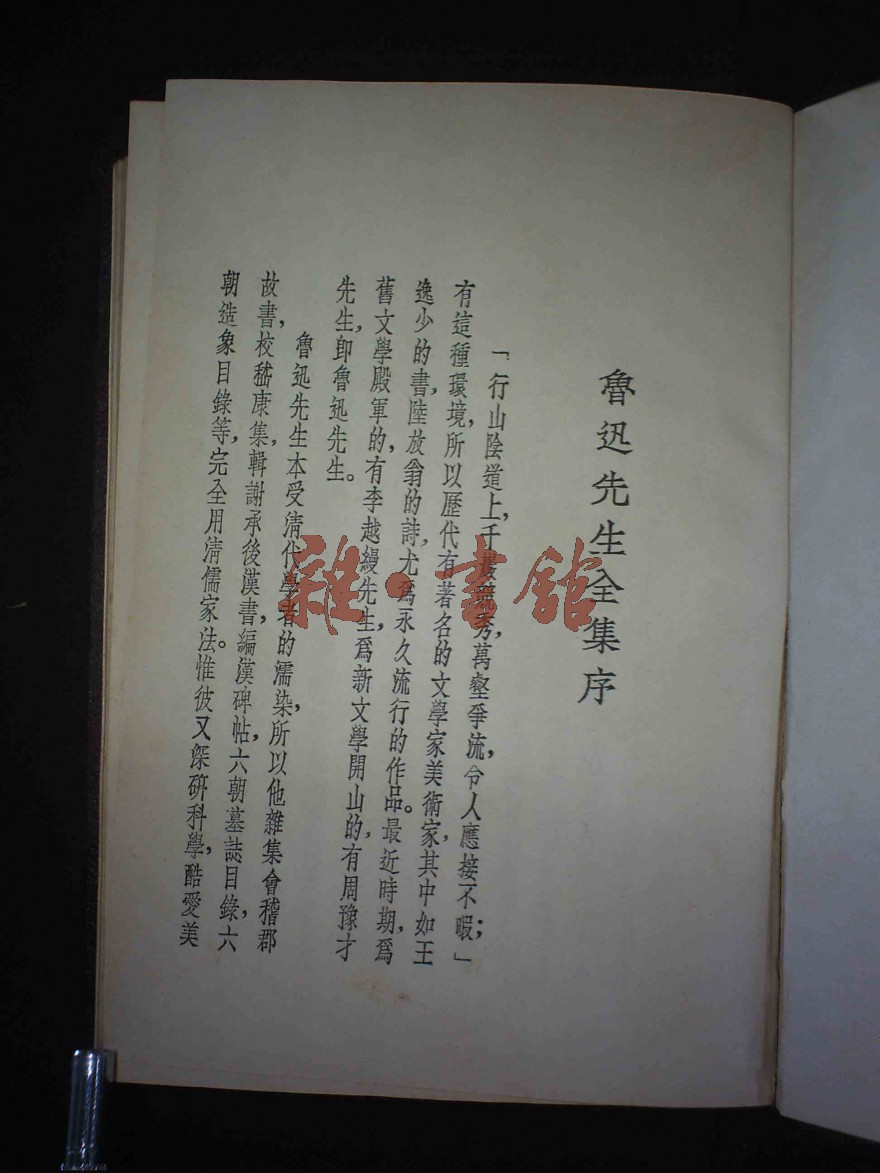 魯迅先生全集序
「行山陰道上,千巖競秀,萬壑爭流,令人應接不暇;」
有這種環境,所以歷代有著名的文學家美術家,其中如王
逸少的書,陸放翁的詩,尤爲永久流行的作品。最近時期,爲
舊文學殿軍的,有李越縵先生,爲新文學開山的,有周豫才
先生,卽魯迅先生。
魯迅先生本受清代學者的濡染,所以他雜集會稽郡
故書,校嵇康集,輯謝承後漢書,編漢碑帖,六朝墓誌目錄,六
朝造象目錄等,完全用清儒家法。惟彼又深研科學,酷愛美
雜·書館